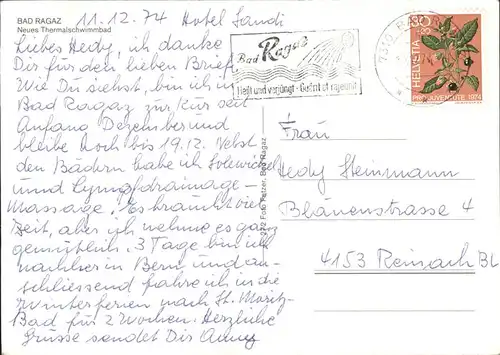 BAD RAGAZ
Neues Thermalschwimmbad
11.12.74 Hotel Sandi
Liebes Hedy, ich danke
Dir für den lieben Brief.
Wie Du siehst, bin ich in
Bad Ragaz zur Kur seit
Anfang Dezember und
bleibe hoch bis 19.12. Nebst
den Bädern habe ich Solewickel
und Lymphdrainage-
Massage. Es braucht viel
Zeit, aber ich nehme es ganz
gemütlich. 3 Tage bin ich
nachher in Bern und an-
schliessend fahre ich in die
Winterferien nach St. Moritz-
Bad für 2 Wochen. Herzliche
Grüsse sendet Dir
Bad Ragaz
Heilt und verjüngt
7310 BAD RAGAZ
30
HELVETIA
PRO JUVENTUTE 1974
Foto Fetzer, Bad Ragaz
Frau
Hedy Steinmann
Blauenstrasse 4
4153 Reinach BL